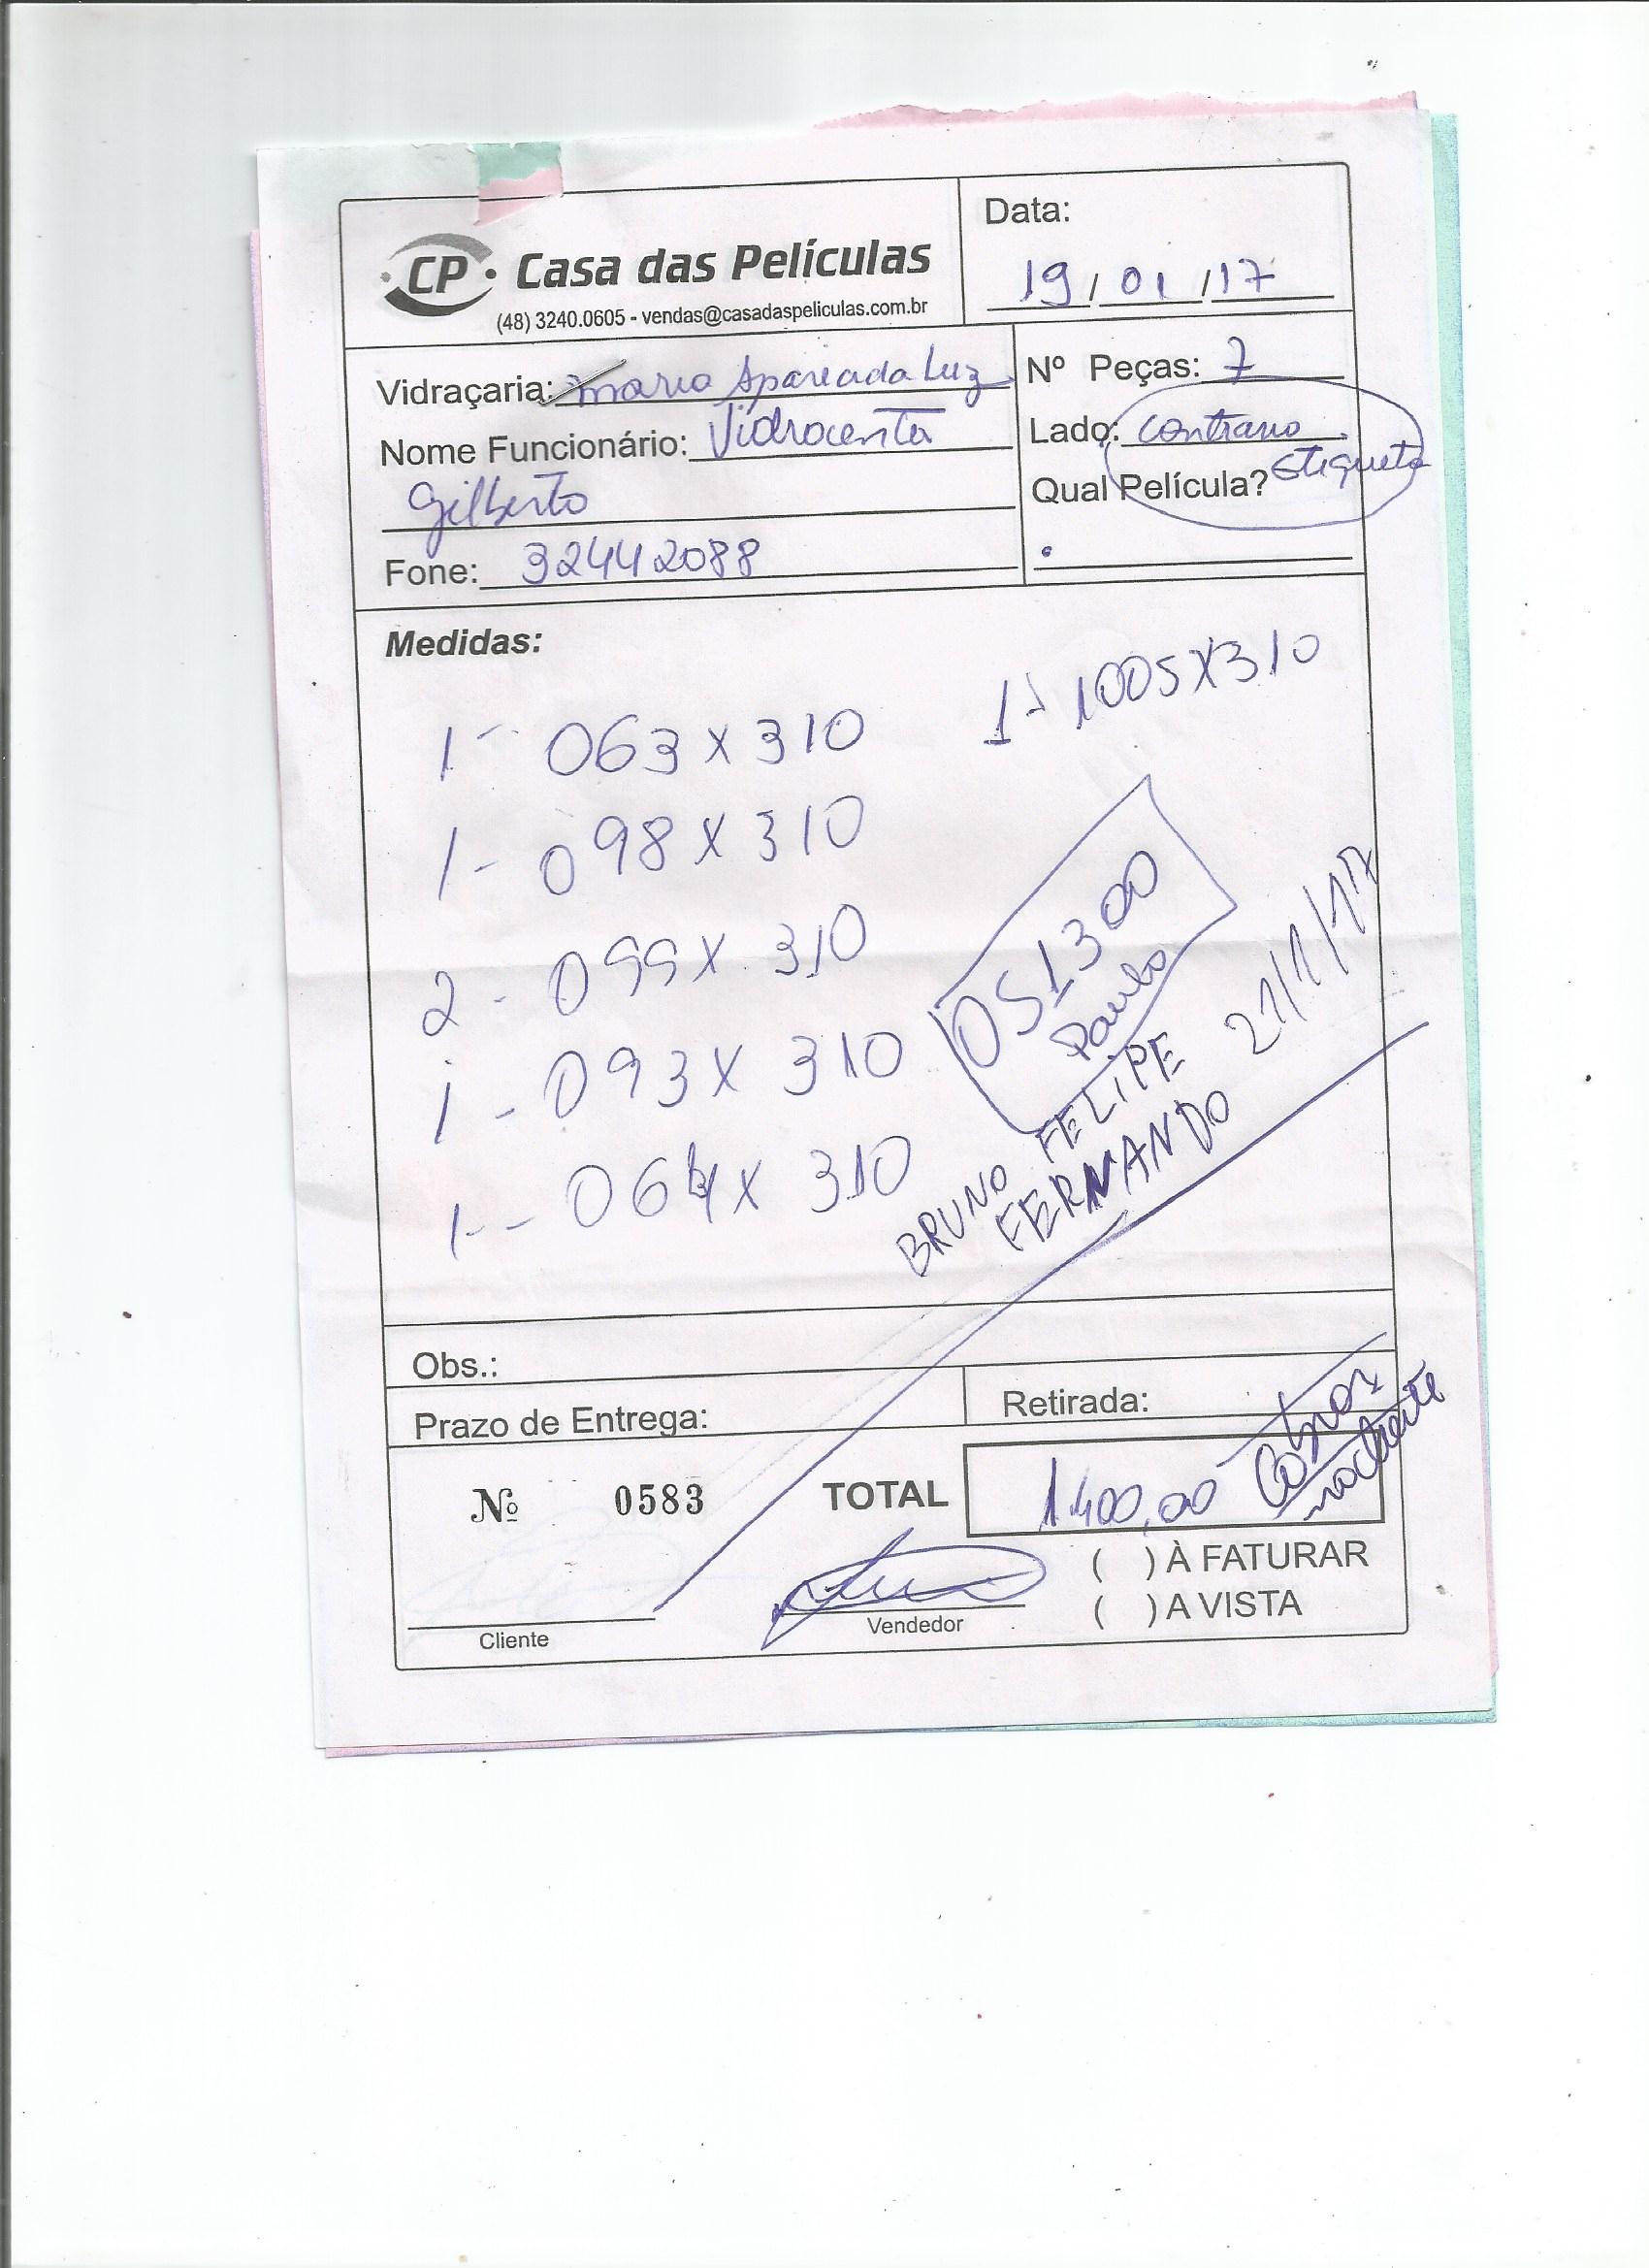 CP Casa das Películas
(48) 3240.0605 - vendas@casadaspeliculas.com.br
Data:
19/01/17
Vidraçaria: Maria Aparecida Luz
Nome Funcionário: Vidrocenter
Gilberto
Fone: 32442088
Nº Peças: 7
Lado: Contrario
Qual Película? Etiqueta
Medidas:
1- 1005X310
1- 063 x 310
1- 098 x 310
2- 099 x 310
1- 093 x 310
1-- 064 x 310
OS 1300
Paulo
BRUNO FELIPE 21/1/17
FERNANDO
Obs.:
Prazo de Entrega:
Retirada:
Nº 0583
TOTAL
1.400,00 Cobrar
( ) À FATURAR
( ) A VISTA
Cliente
Vendedor